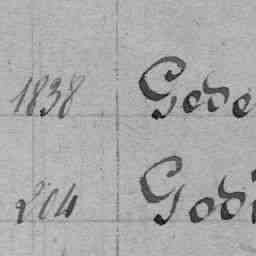 1838 Gede
204 Godi